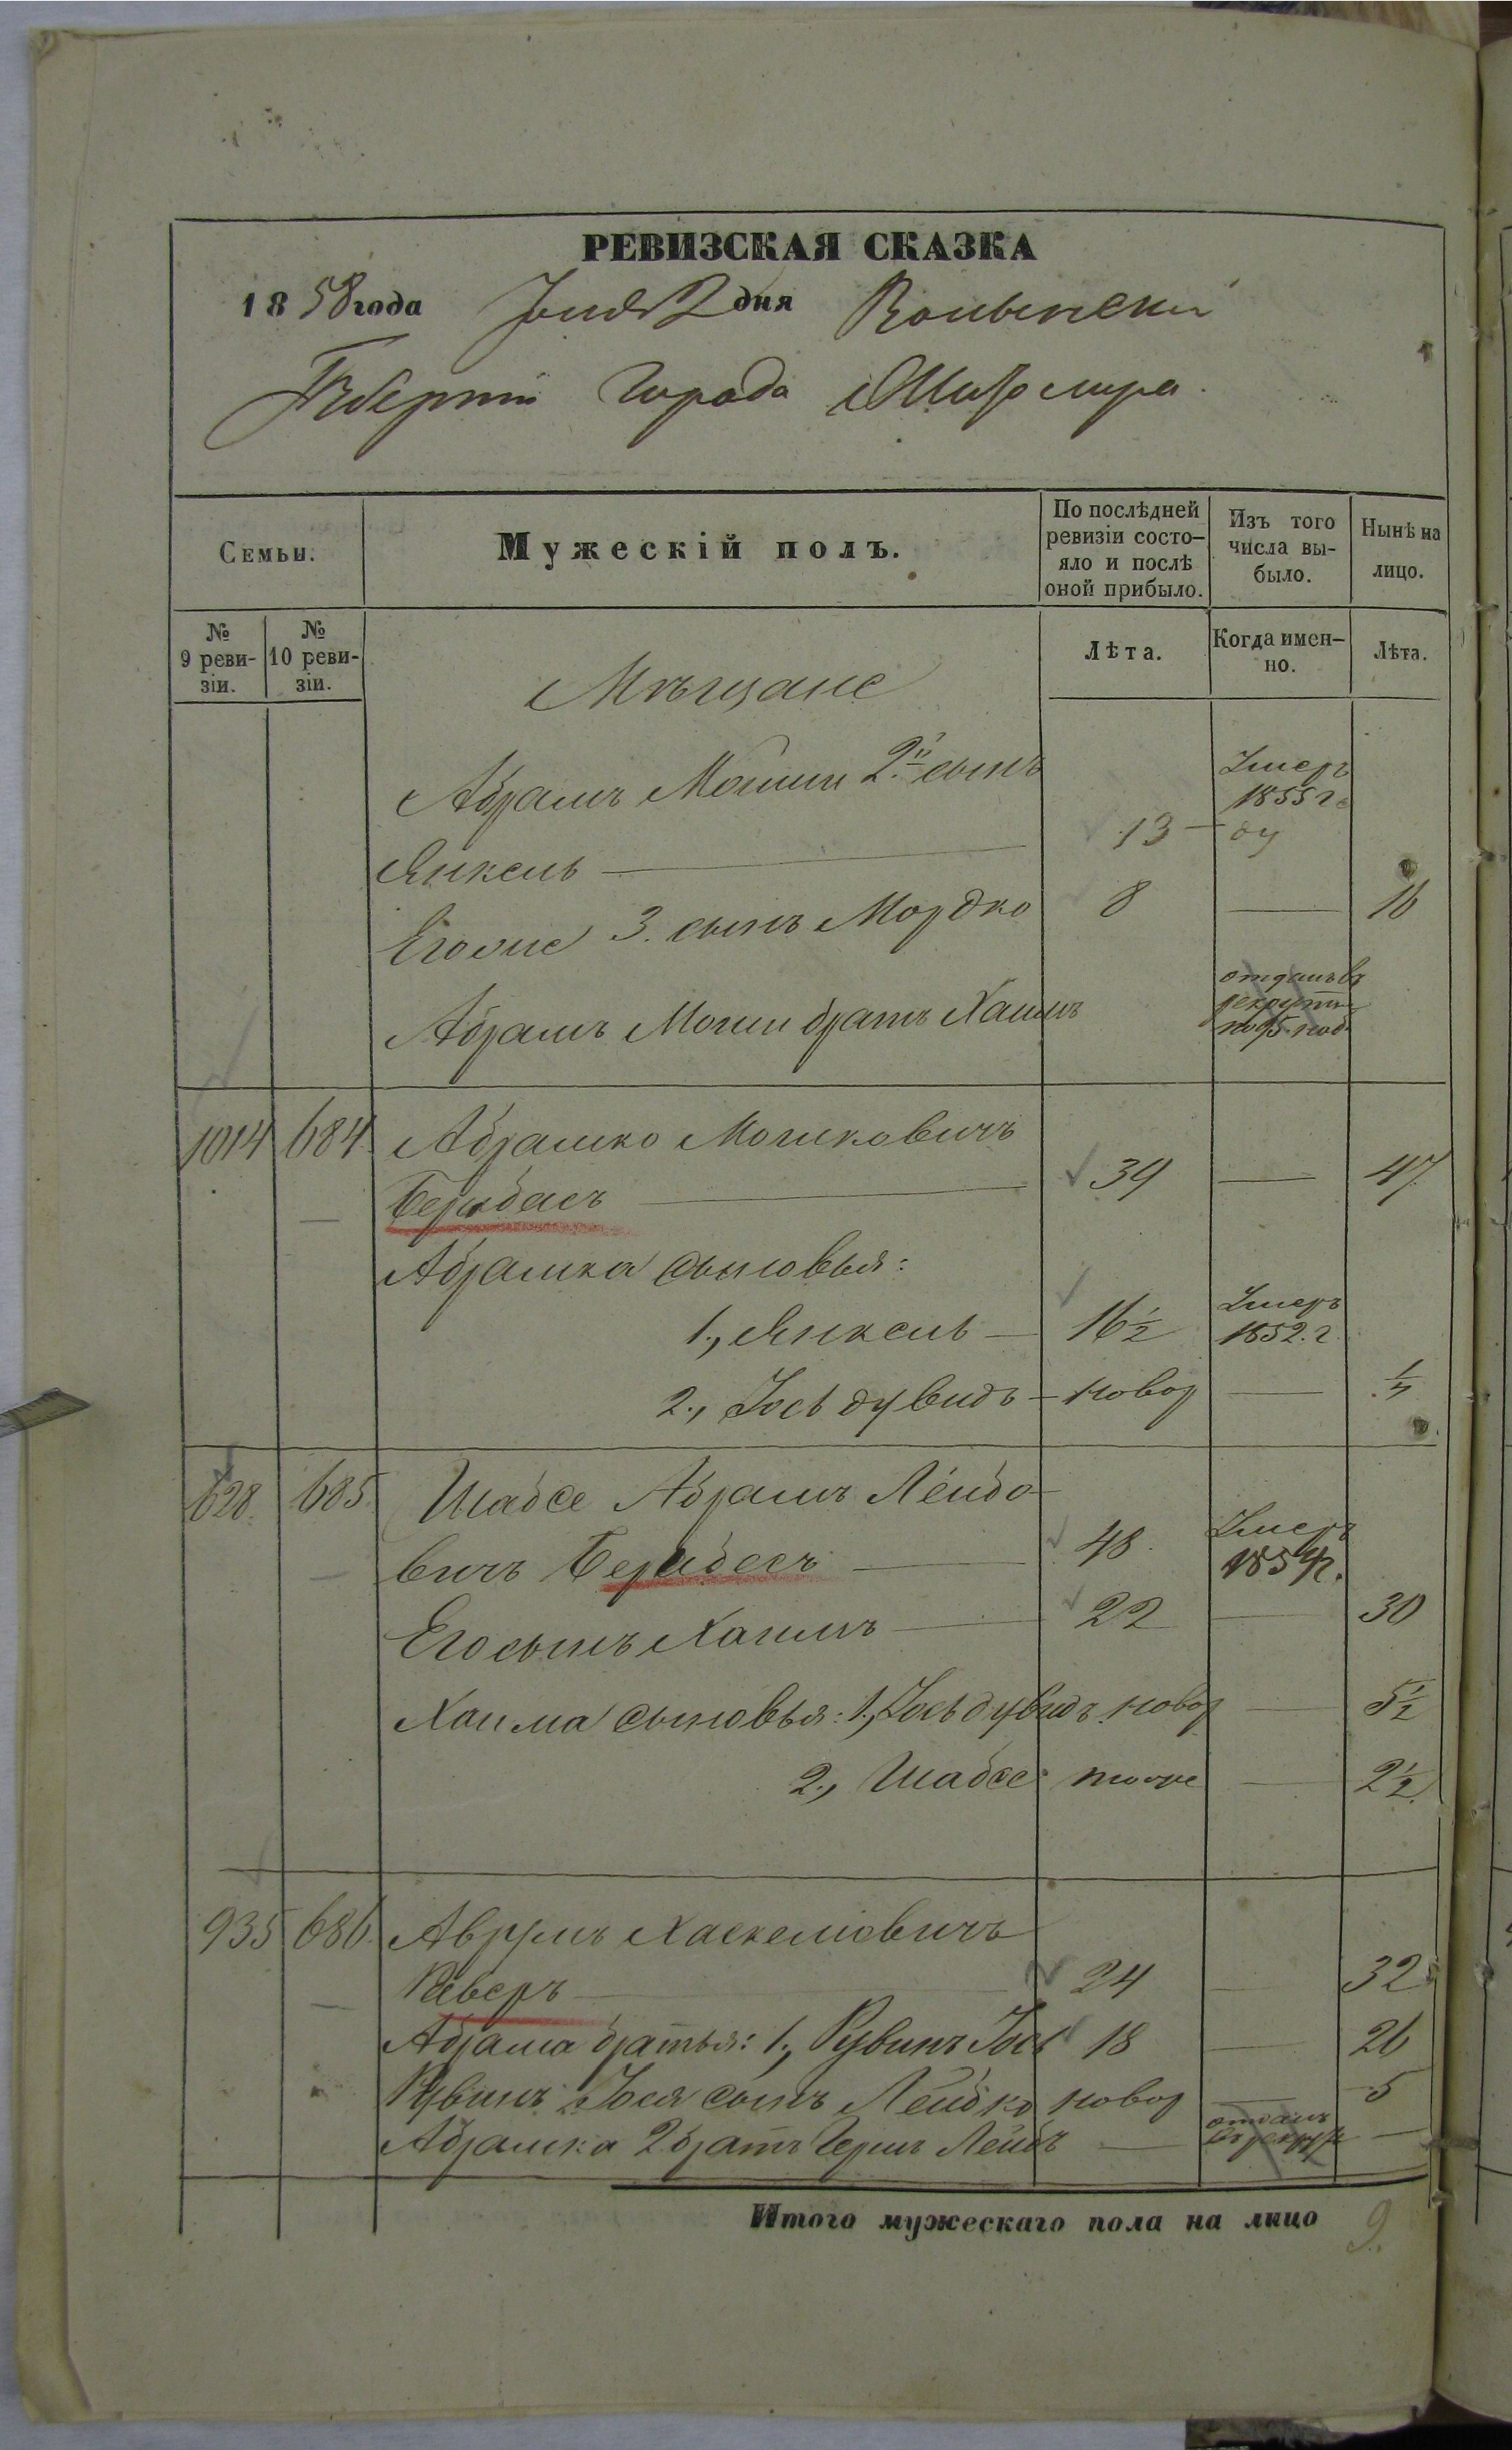 РЕВИЗСКАЯ СКАЗКА
1858 года Іюня 2 дня Волынской
Губерніи города Житомира.
Семьи.
Мужескій полъ.
По послѣдней ревизіи состо-
яло и послѣ
оной прибыло.
Изъ того
числа вы-
было.
Нынѣ на
лицо.
№
9 реви-
зіи.
№
10 реви-
зіи.
Лѣта.
Когда имен-
но.
Лѣта.
Мѣщане
Абрамъ Мошки 2й сынъ
Янкель 13 Умеръ 1855 г.
Его же 3. сынъ Мордко 8 — 16
Абрамъ Мошки братъ Хаимъ отданъ въ рекруты
1014 684 Абрамко Мошковичъ
39 — 47
Абрамка сыновья:
1., Янкель — 16½ Умеръ 1852. г.
2., Іось дувидъ — новор —
628. 685. Шабсе Абрамъ Лейбо-
вичъ 48. Умеръ
Его сынъ Хаимъ — 22 — 30
Хаима сыновья: 1., Іось дувидъ новор — 5½
2., Шабсе тоже — 2½.
935 686. Аврумъ Хаскелювичъ
24 — 32
Абрама братья: 1., Рувинъ Іось 18 — 26
Рувинъ Іося сынъ Лейбко новор — 5
Абрамка 2 братъ Герш Лейбъ — отданъ —
Итого мужескаго пола на лицо 9.